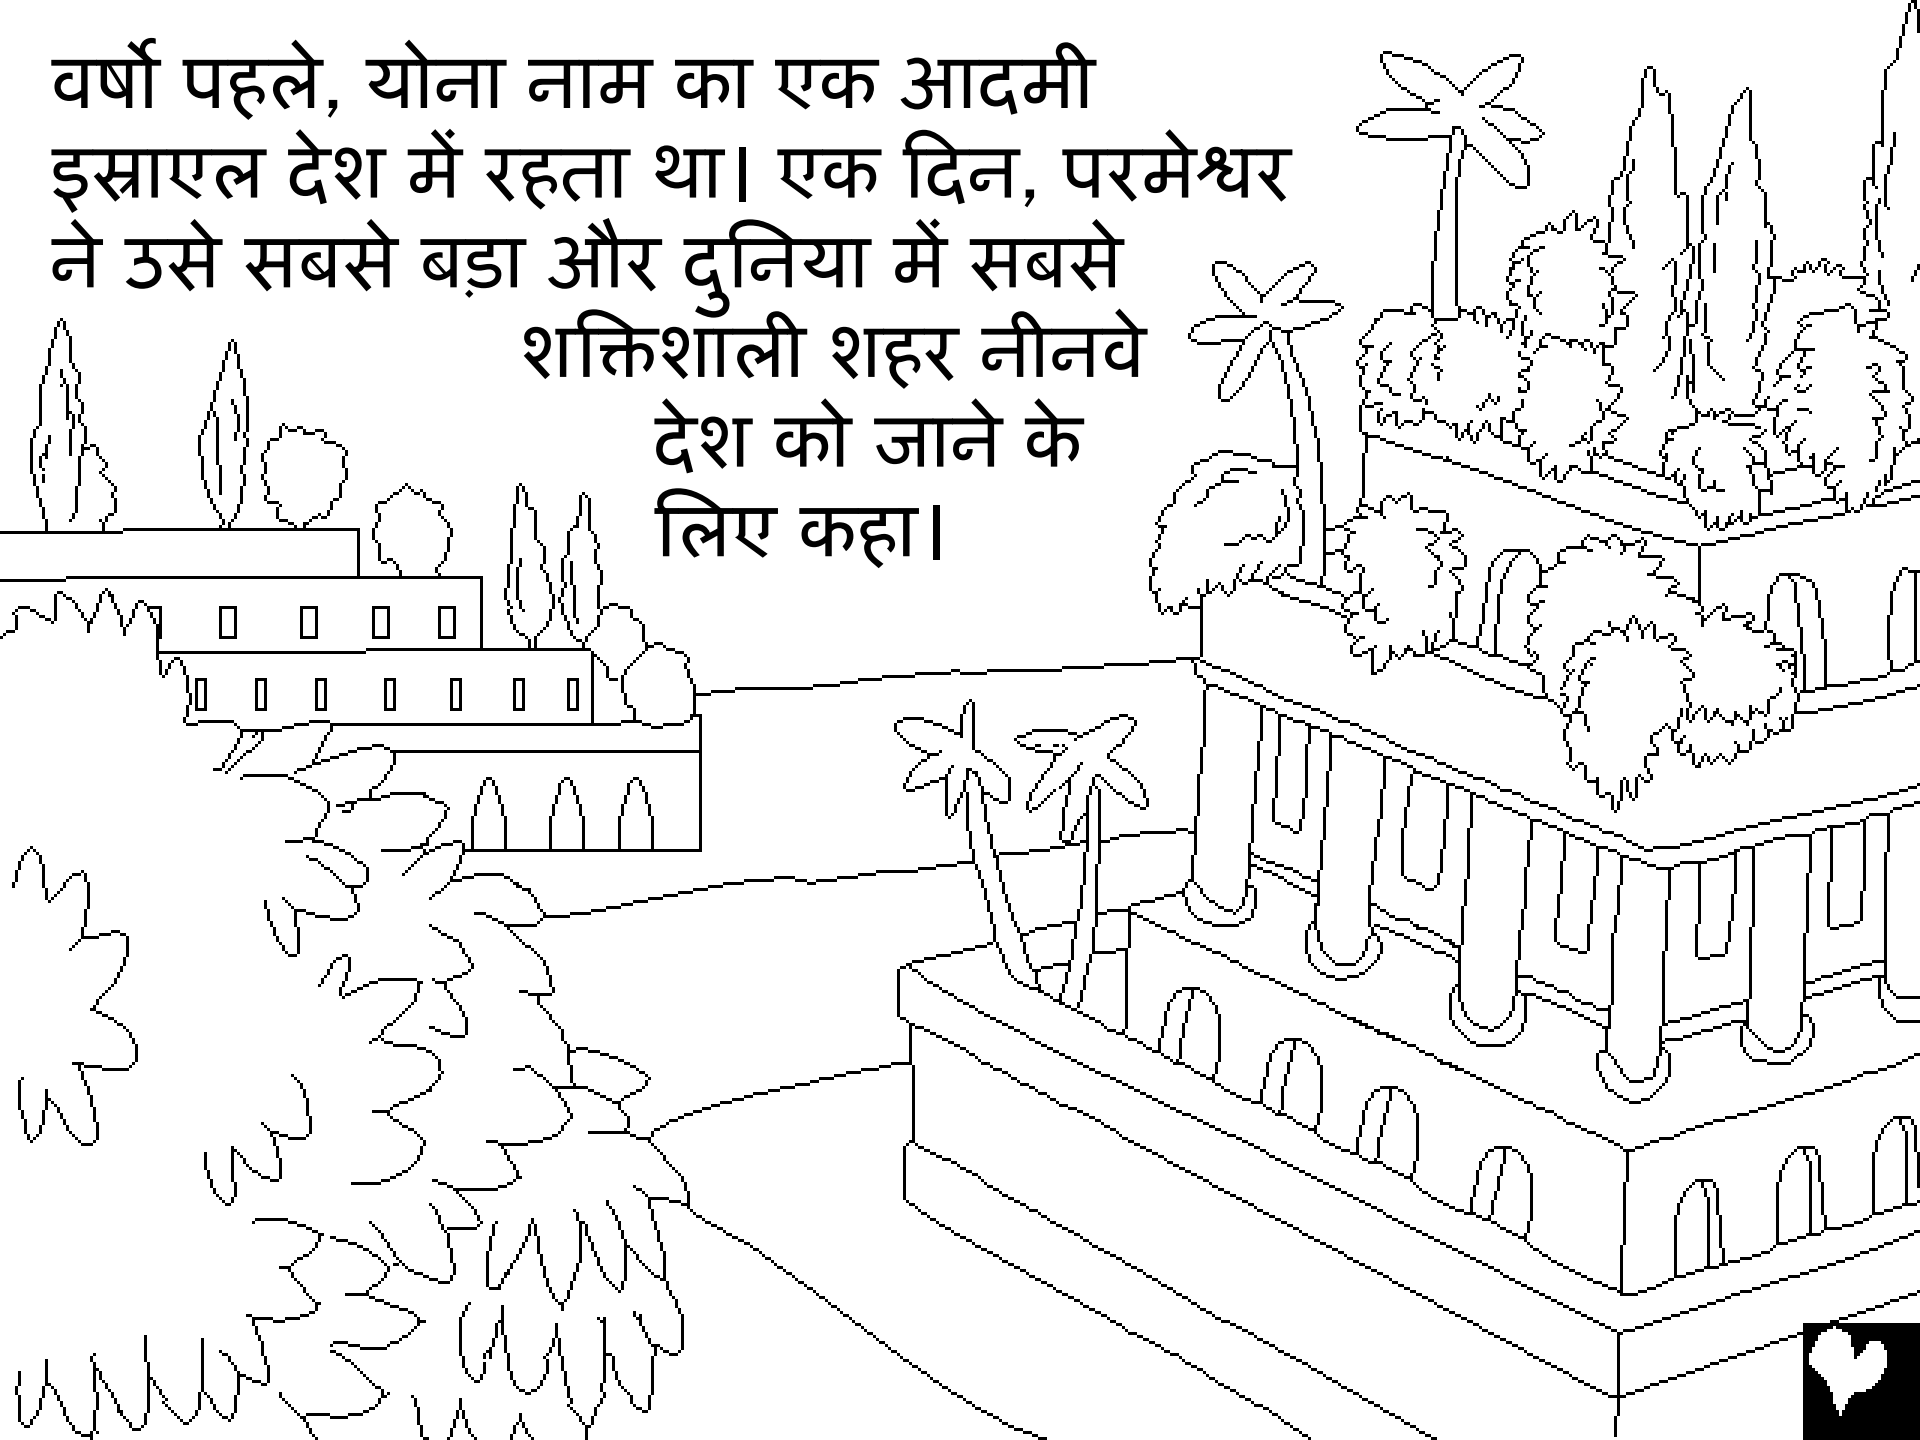 वर्षो पहले, योना नाम का एक आदमी
इस्राएल देश में रहता था। एक दिन, परमेश्वर
ने उसे सबसे बड़ा और दुनिया में सबसे
शक्तिशाली शहर नीनवे
देश को जाने के
लिए कहा।